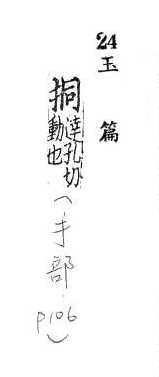 24
玉篇
挏達孔切動也(手部 P106)